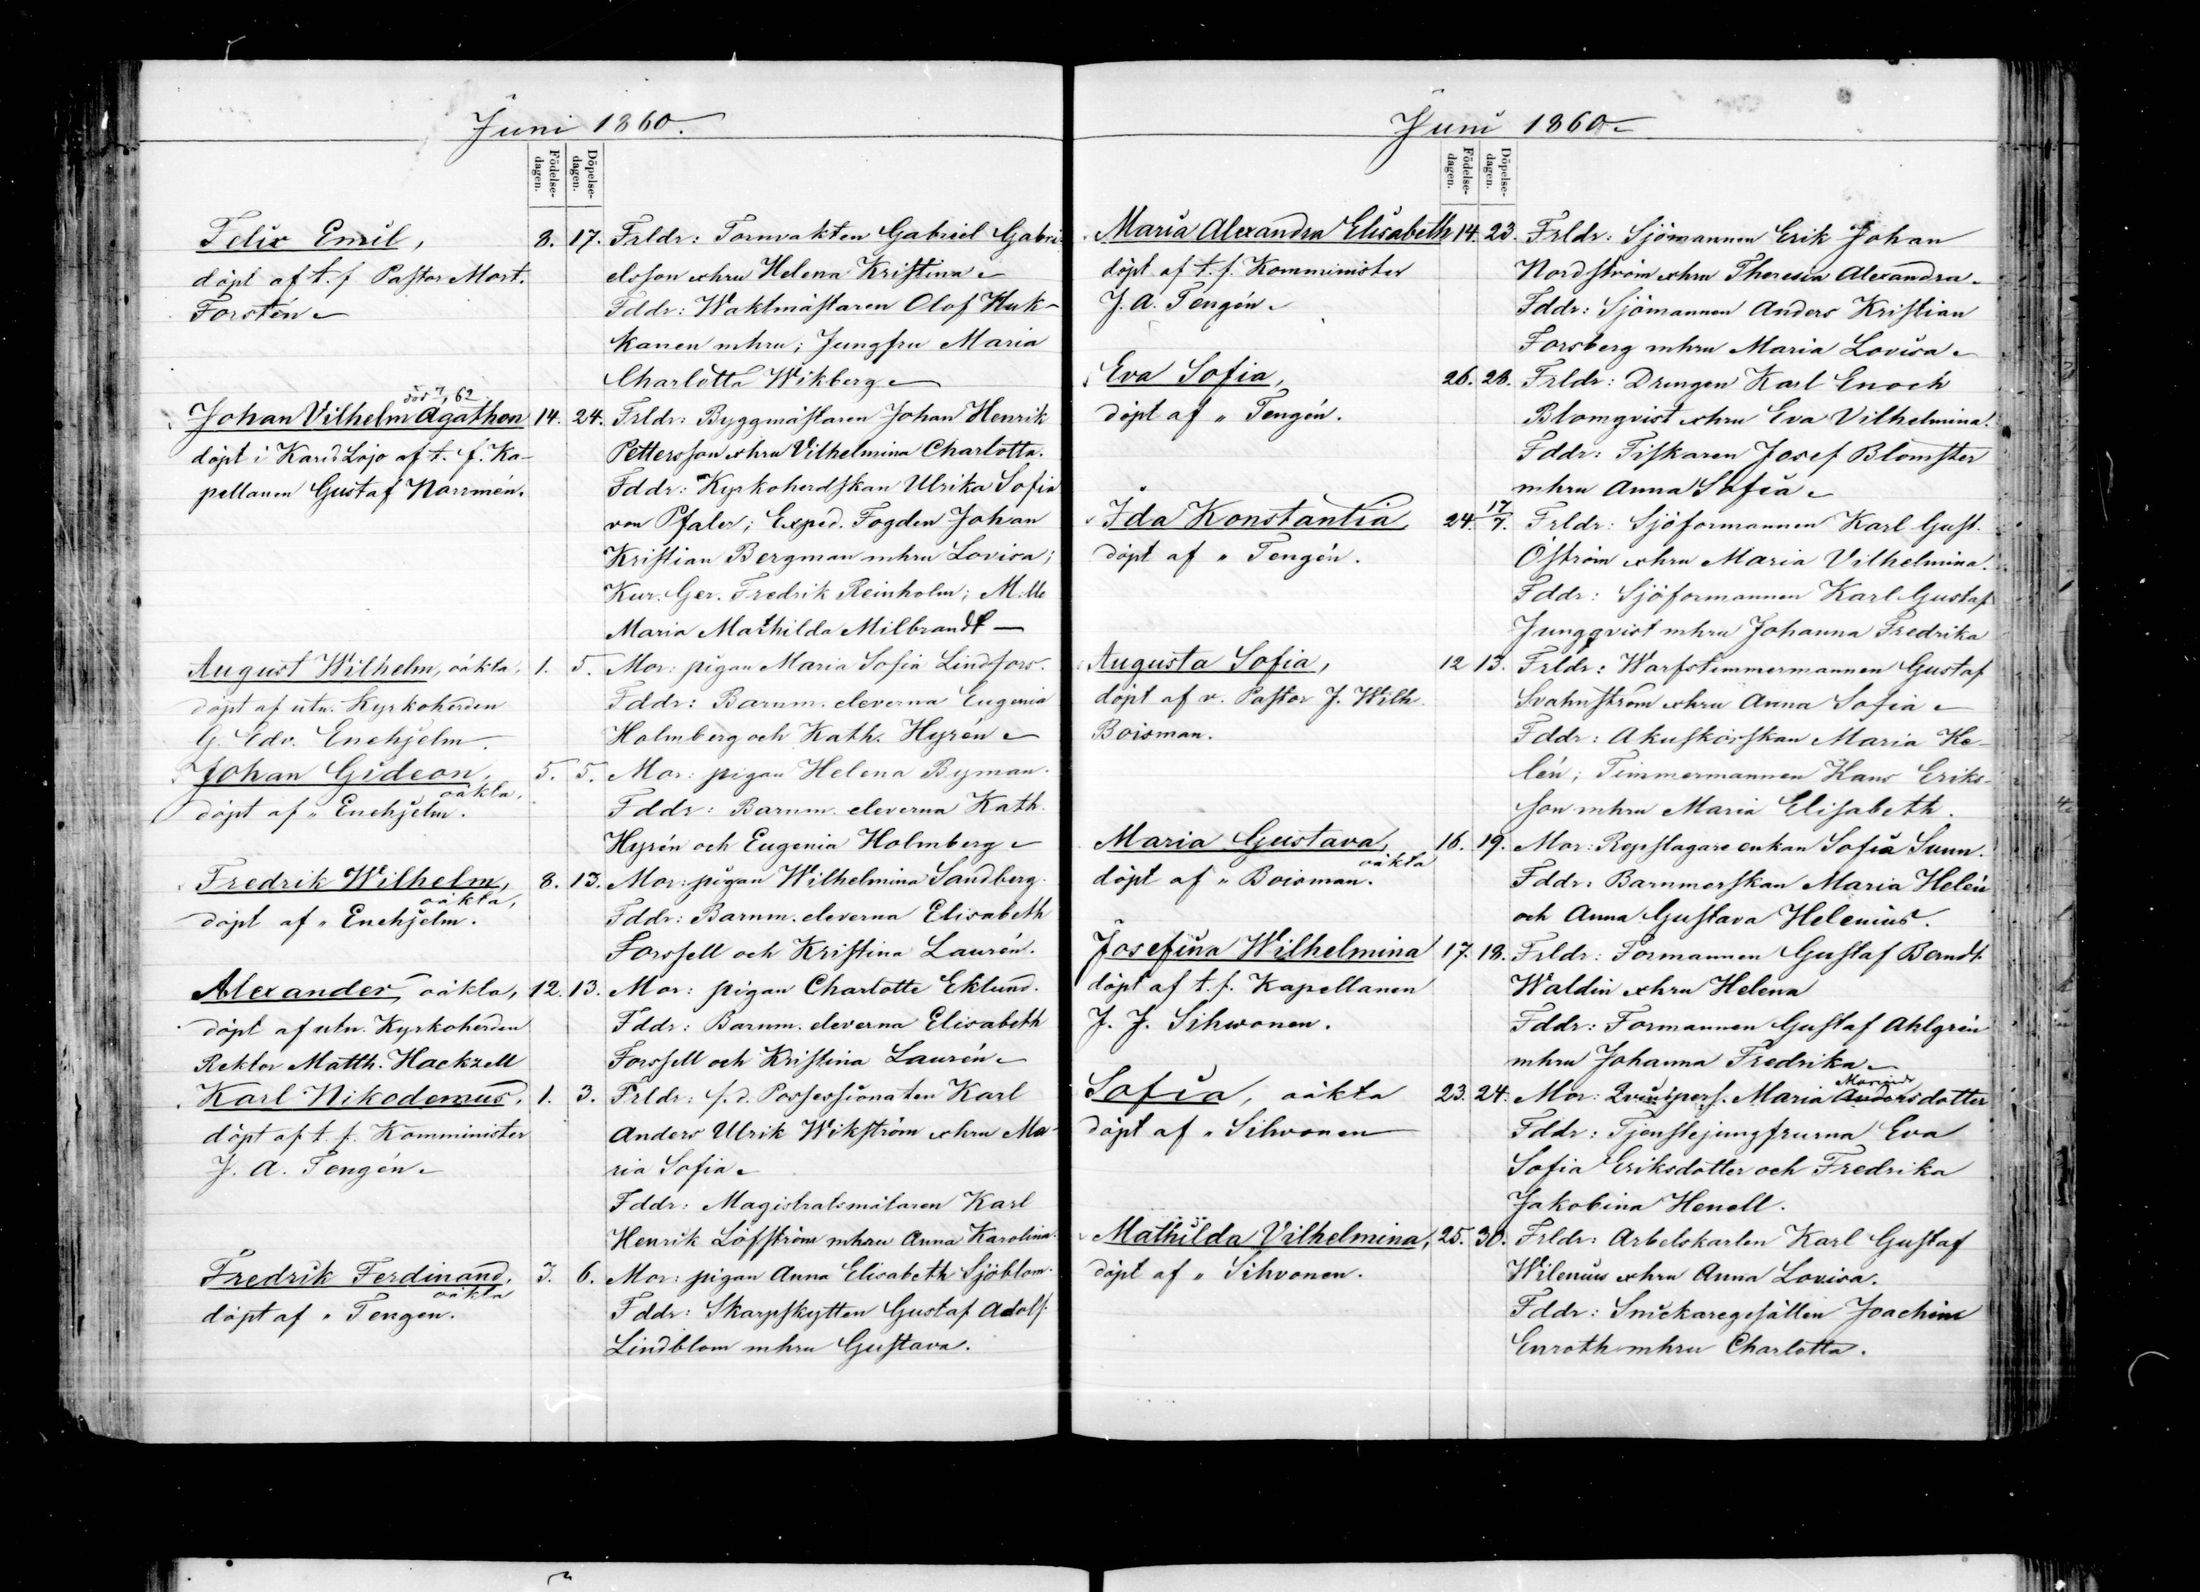 Juni 1860.
Födelse-
dagen.
Döpelse-
dagen.
Felix Emil, 8. 17. Frldr: Tornvakten Gabriel Gabri-
döpt af t. f. Pastor Mort. elsson o hru Helena Kristina
Forstén Fddr: Waktmästaren Olof Huk-
kanen mhru; Jungfru Maria
Charlotta Wikberg
död 62
Johan Vilhelm Agathon 14. 24. Frldr: Byggmästaren Johan Henrik
döpt i Karis Lojo af t. f. Ka- Pettersson o hru Vilhelmina Charlotta.
pellanen Gustaf Norrmén. Fddr: Kyrkoherdskan Ulrika Sofia
von Pfaler; Exped. Fogden Johan
Kristian Bergman mhru Lovisa;
Kur. Ger. Fredrik Reinholm; M:lle
Maria Mathilda Milbrandt
August Wilhelm, oäkta, 1. 5. Mor: pigan Maria Sofia Lindfors.
döpt af utn. Kyrkoherden Fddr: Barnm. eleverna Eugenia
G. Edv. Enehjelm. Holmberg och Kath. Hyrén
Johan Gideon, 5. 5. Mor: pigan Helena Byman.
oäkta,
döpt af " Enehjelm. Fddr: Barnm. eleverna Kath.
Hyrén och Eugenia Holmberg
Fredrik Wilhelm, 8. 13. Mor: pigan Wilhelmina Sandberg.
oäkta,
döpt af " Enehjelm. Fddr: Barnm. eleverna Elisabeth
Forssell och Kristina Laurén.
Alexander, oäkta, 12. 13. Mor: pigan Charlotte Eklund.
döpt af utn. Kyrkoherden Fddr: Barnm. eleverna Elisabeth
Rektor Matth. Hackzell Forssell och Kristina Laurén
Karl Nikodemus, 1. 3. Frldr: f. d. Possessionaten Karl
döpt af t. f. Komminister Anders Ulrik Wikström o hru Ma-
J. A. Tengén ria Sofia
Fddr: Magistratsmätaren Karl
Henrik Löfström mhru Anna Karolina.
Fredrik Ferdinand, 3. 6. Mor: pigan Anna Elisabeth Sjöblom.
oäkta
döpt af " Tengén. Fddr: Skarpskytten Gustaf Adolf
Lindblom mhru Gustava.
Juni 1860
Födelse-
dagen.
Döpelse-
dagen.
Maria Alexandra Elisabeth 14. 23. Frldr: Sjömannen Erik Johan
döpt af t. f. Komminister Nordström o hru Theresia Alexandra
J. A. Tengén Fddr: Sjömannen Anders Kristian
Forsberg mhru Maria Lovisa
Eva Sofia, 26. 28. Frldr: Drengen Karl Enoch
döpt af " Tengén. Blomqvist o hru Eva Vilhelmina.
Fddr: Fiskaren Josef Blomster
mhru Anna Sofia
Ida Konstantia 24. 17/7. Frldr: Sjöformannen Karl Gust.
döpt af " Tengén. Öström o hru Maria Vilhelmina.
Fddr: Sjöformannen Karl Gustaf
Jungqvist mhru Johanna Fredrika
Augusta Sofia, 12 13. Frldr: Warfstimmermannen Gustaf
döpt af v. Pastor J. Wilh. Svahnström o hru Anna Sofia
Boisman. Fddr: Akuskörskan Maria He-
lén; Timmermannen Hans Eriks-
son mhru Maria Elisabeth.
Maria Gustava, 16. 19. Mor: Repslagare enkan Sofia Sunn.
oäkta
döpt af " Boisman. Fddr: Barnmorskan Maria Helén
och Anna Gustava Helenius.
Josefina Wilhelmina 17. 18. Frldr: Formannen Gustaf Berndt
döpt af t. f. Kapellanen Waldin o hru Helena
J. J. Sihwonen. Fddr: Formannen Gustaf Ahlgrén
mhru Johanna Fredrika
Sofia, oäkta 23. 24. Mor: Qvinspers. Maria Andersdotter
döpt af " Sihvonen Fddr: Tjenstejungfrurna Eva
Sofia Eriksdotter och Fredrika
Jakobina Henell.
Mathilda Vilhelmina, 25. 30. Frldr: Arbetskarlen Karl Gustaf
döpt af " Sihvonen. Wilenius o hru Anna Lovisa.
Fddr: Snickaregesällen Joachim
Enroth mhru Charlotta.